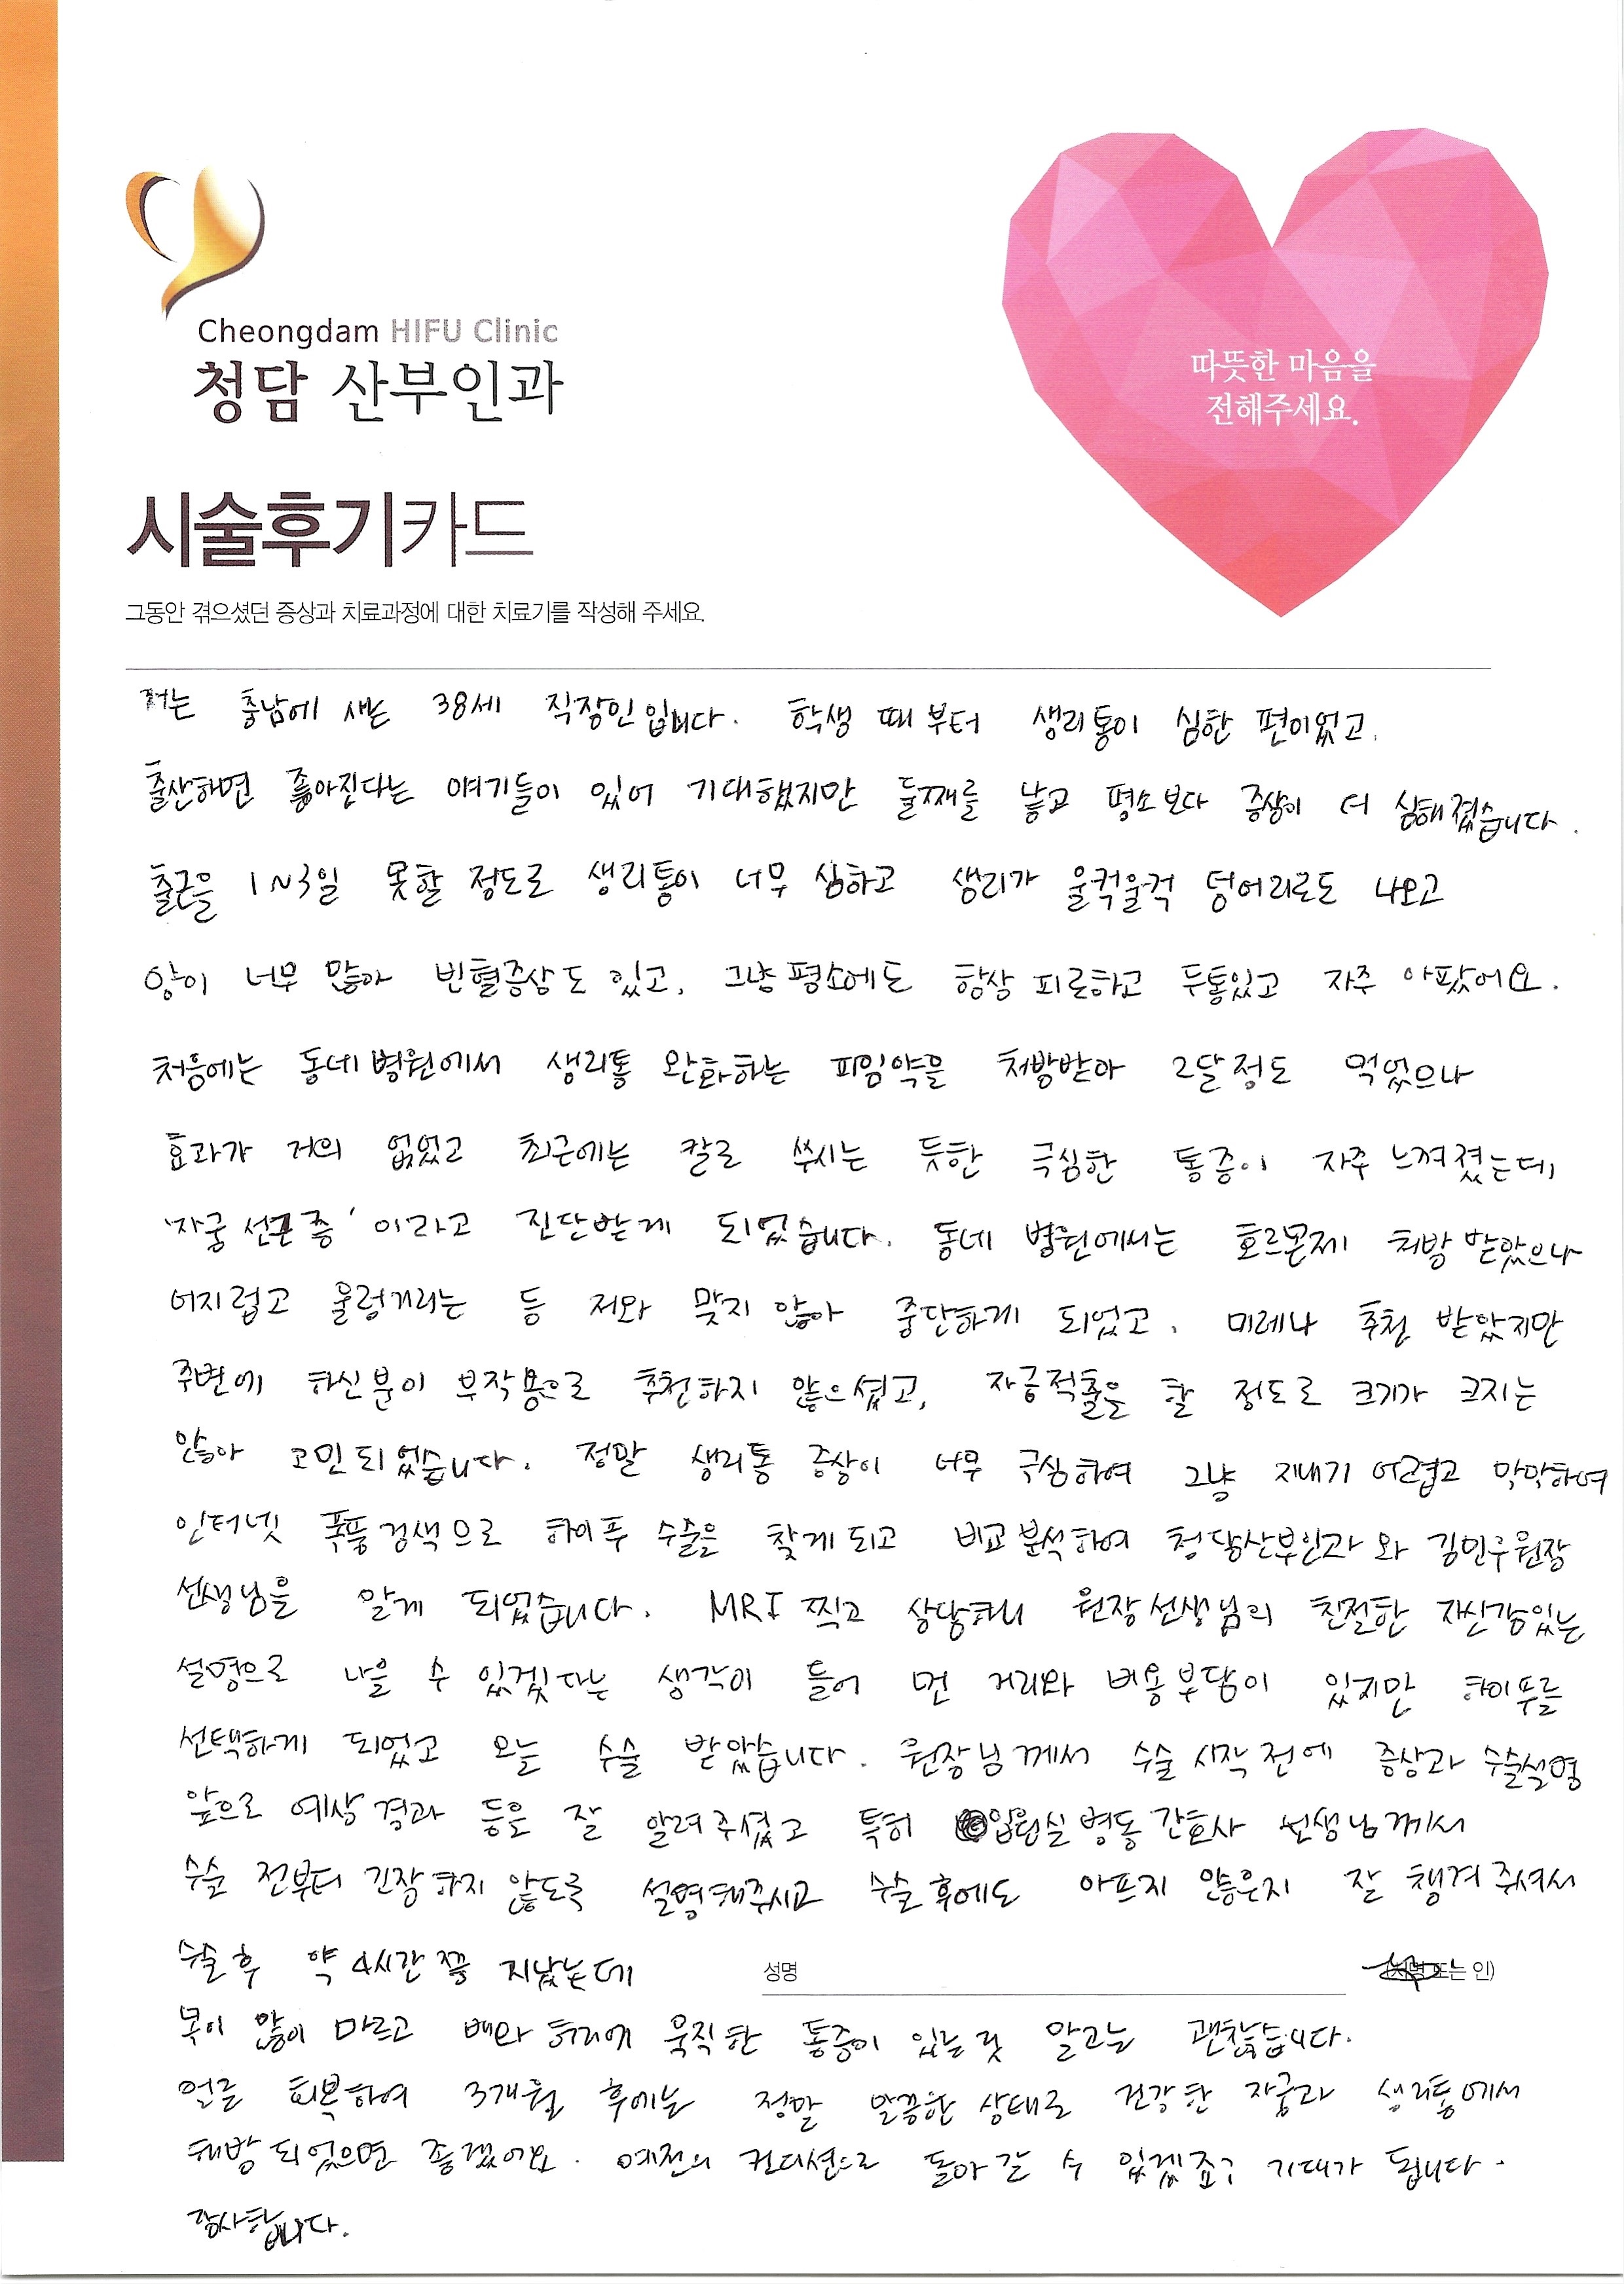 Cheongdam HIFU Clinic
청담 산부인과
따뜻한 마음을
전해주세요.
시술후기카드
그동안 겪으셨던 증상과 치료과정에 대한 치료기를 작성해 주세요.
저는 충남에 사는 38세 직장인입니다. 학생 때부터 생리통이 심한 편이었고,
출산하면 좋아진다는 얘기들이 있어 기대했지만 둘째를 낳고 평소보다 증상이 더 심해졌습니다.
출근을 1~3일 못할 정도로 생리통이 너무 심하고 생리가 울컥울컥 덩어리로도 나오고
양이 너무 많아 빈혈증상도 있고, 그냥 평소에도 항상 피곤하고 두통있고 자주 아팠어요.
처음에는 동네병원에서 생리통 완화하는 피임약을 처방받아 2달정도 먹었으나
효과가 거의 없었고 최근에는 칼로 쑤시는 듯한 극심한 통증이 자주 느껴졌는데,
'자궁선근증' 이라고 진단받게 되었습니다. 동네 병원에서는 호르몬제 처방 받았으나
어지럽고 울렁거리는 등 저와 맞지 않아 중단하게 되었고, 미레나 추천 받았지만
주변에 하신분이 부작용으로 추천하지 않으셨고, 자궁적출을 할 정도로 크기가 크지는
않아 고민되었습니다. 정말 생리통 증상이 너무 극심하여 그냥 지내기 어렵고 막막하여
인터넷 폭풍검색으로 하이푸 수술을 찾게되고 비교분석하여 청담산부인과와 김민우원장
선생님을 알게 되었습니다. MRI 찍고 상담하니 원장선생님의 친절한 자신감있는
설명으로 나을 수 있겠다는 생각이 들어 먼 거리와 비용부담이 있지만 하이푸를
선택하게 되었고 오늘 수술 받았습니다. 원장님께서 수술 시작 전에 증상과 수술설명
앞으로 예상결과 등을 잘 알려주셨고 특히 입원실병동 간호사 선생님께서
수술 전부터 긴장하지 않도록 설명해주시고 수술후에도 아프지 않은지 잘 챙겨주셔서
수술후 약 4시간쯤 지났는데
성명
또는 인)
목이 많이 마르고 배와 허리에 묵직한 통증이 있는것 말고는 괜찮습니다.
얼른 회복하여 3개월 후에는 정말 말끔한 상태로 건강한 자궁과 생리통에서
해방되었으면 좋겠어요. 예전의 컨디션으로 돌아갈 수 있겠죠? 기대가 됩니다.
감사합니다.